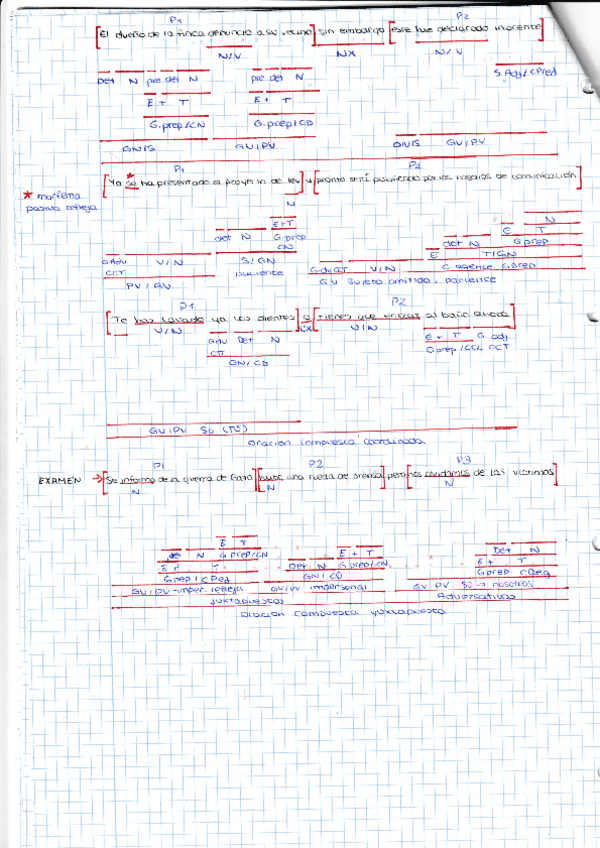 P1 P2
[El dueño de la finca denunció a su vecino] sin embargo [ese fue declarado inocente]
N/V NX N/V
Det N pre det N pre det N S.Adj/CPred
E + T E + T
G.prep/CN G.prep/CD
GN/S GV/PV GN/S GV/PV
P1 P2
[Ya se ha presentado el proyecto de ley] y [pronto será publicado por los medios de comunicación]
* morfema
pasiva refleja
N N
E+T E T
det N G.prep det N G.prep
CN
G.Adv V/N S/GN E T/GN
CCT paciente V/N C. agente G.prep
PV/GV GV Sujeto omitido, paciente
P1 P2
[Te has lavado ya los dientes] o [tienes que entrar al baño ahora]
V/N NX V/N
G.Adv Det N E + T G.adj
CCT G.prep/CCL CCT
GN/CD
GV/PV SO (TÚ)
Oración compuesta coordinada
P1 P2 P3
EXAMEN → [Se informó de la guerra de Gaza] [hubo una rueda de prensa] pero [nos olvidamos de las víctimas]
N N N
E T
N G.prep/CN E + T Det N
E + T Det N G.prep/CN E + T
G.prep/CReg GN/CD G.prep CReg
GV/PV-imper. refleja GV/PV impersonal GV/PV SO → nosotros
yuxtapuestas Adversativas
Oración compuesta yuxtapuesta